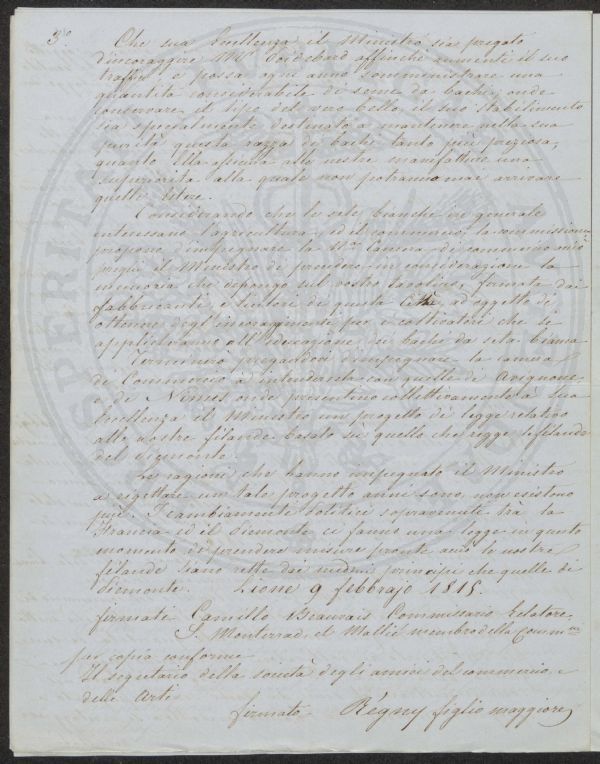 3.° Che sua Eccellenza il Ministro sia pregato
d'incoraggire Mr affinchè aumenti il suo
traffico e possa ogni anno somministrare una
quantità considerabile di seme da bachi, onde
conservare il tipo del vero bello, il suo stabilimento
sia specialmente destinato a mantenere nella sua
purità questa razza di bachi tanto più preziosa,
quanto Ella alle nostre manifatture una
superiorità alla quale non potranno mai arrivare
quelle Estere.
Considerando che le sete bianche in generale
interessano l'agricoltura, ed il commercio, la commissione
propone d'impegnare la Camera di commercio
il Ministro di prendere in considerazione la
memoria che depongo sul vostro tavolino, firmata dai
fabbricanti, e tintori di questa Città, ad oggetto di
ottenere degl'incoraggimenti per i coltivatori che si
applicheranno all'educazione dei bachi da seta bianca
Terminerò pregandovi d'impegnare la camera
di Commercio ad intendersela con quelle di Avignone,
e di Nimes onde presentino collettivamente a Sua
Eccellenza il Ministro un progetto di legge relativo
alle nostre filande basato su quello che regge le filande
del Piemonte.
Le ragioni che hanno impegnato il Ministro
a rigettare un tale progetto anni sono, non esistono
più. I cambiamenti politici sopravenuti tra la
Francia ed il Piemonte ci fanno una legge in questo
momento di prendere misure pronte le nostre
filande siano rette dai medmi principii che quelle di
Piemonte. Lione 9 febbrajo 1815.
firmati Camillo Beauvais Commissario Relatore.
S. Monterrad, et Mattié membro della Comm.ne
per copia conforme
Il segretario della società degli amici del commercio, e
delle Arti
firmato Régny figlio maggiore